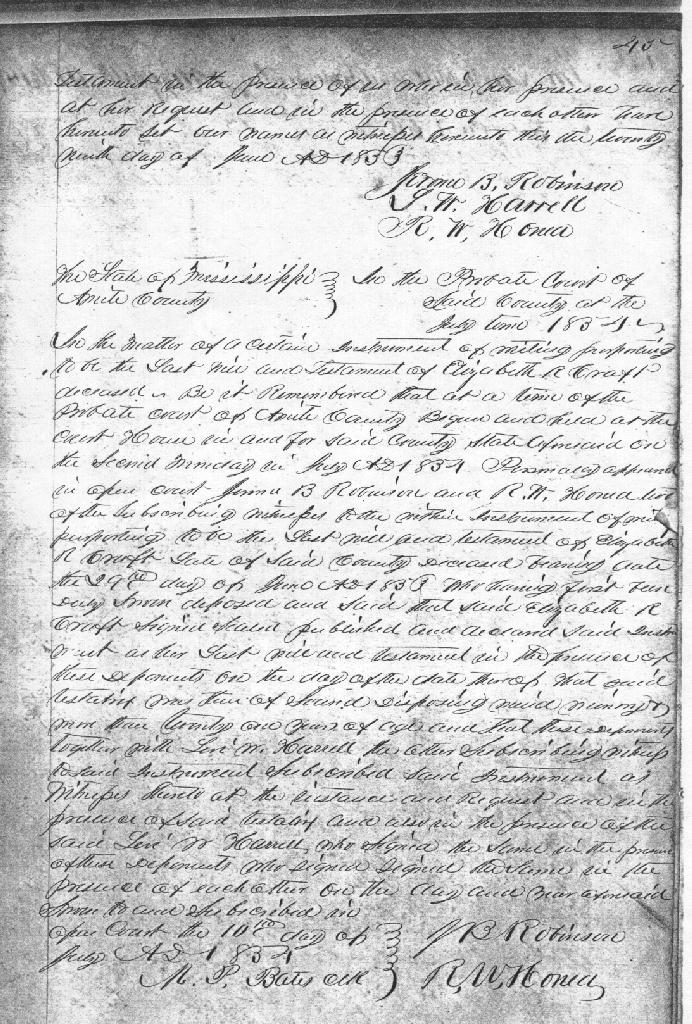 45
Testament in the presence of us who in her presence and
at her request and in the presence of each other have
hereunto set our names as witnesses hereunto this the twenty
ninth day of June AD 1833
Jerome B. Robinson
L. W. Harrell
R. W. Honea
The State of Mississippi In the Probate Court of
Amite County Said County at the
July term 1834
In the matter of a certain Instrument of writing purporting
to be the Last will and Testament of Elizabeth R Craft
deceased Be it Remembered that at a term of the
Probate court of Amite County Begun and held at the
Court House in and for said County State aforesaid on
the Second Monday in July AD 1834 Personally appeared
in open court Jerome B Robinson and R. W. Honea two
of the Subscribing witnesses to the within Instrument of
purporting to be the Last will and testament of Elizabeth
R Craft Late of Said County deceased bearing date
the 29th day of June AD 1833 who having first been
duly Sworn deposed and Said that said Elizabeth R
Craft Signed Sealed published and declared said Instr
ment as her Last will and testament in the presence of
these deponents on the day of the date thereof that said
testatrix was then of Sound disposing mind memory &
more than twenty one years of age and that these deponents
together with Levi W. Harrell the other Subscribing witness
to said Instrument Subscribed Said Instrument as
Witnesses thereto at the instance and Request and in the
presence of said testatrix and also in the presence of the
said Levi W Harrell, who signed the same in the presence
of these deponents who signed signed the same in the
presence of each other on the day and year aforesaid
Sworn to and Subscribed in
open Court the 10th day of J B Robinson
July AD 1834
M. P. Bates clk R. W. Honea